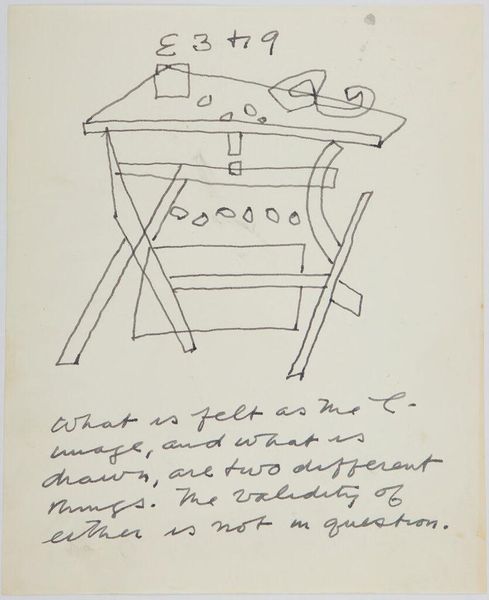 E 3 + 9
What is felt as the
image, and what is
drawn, are two different
things. The validity of
either is not in question.